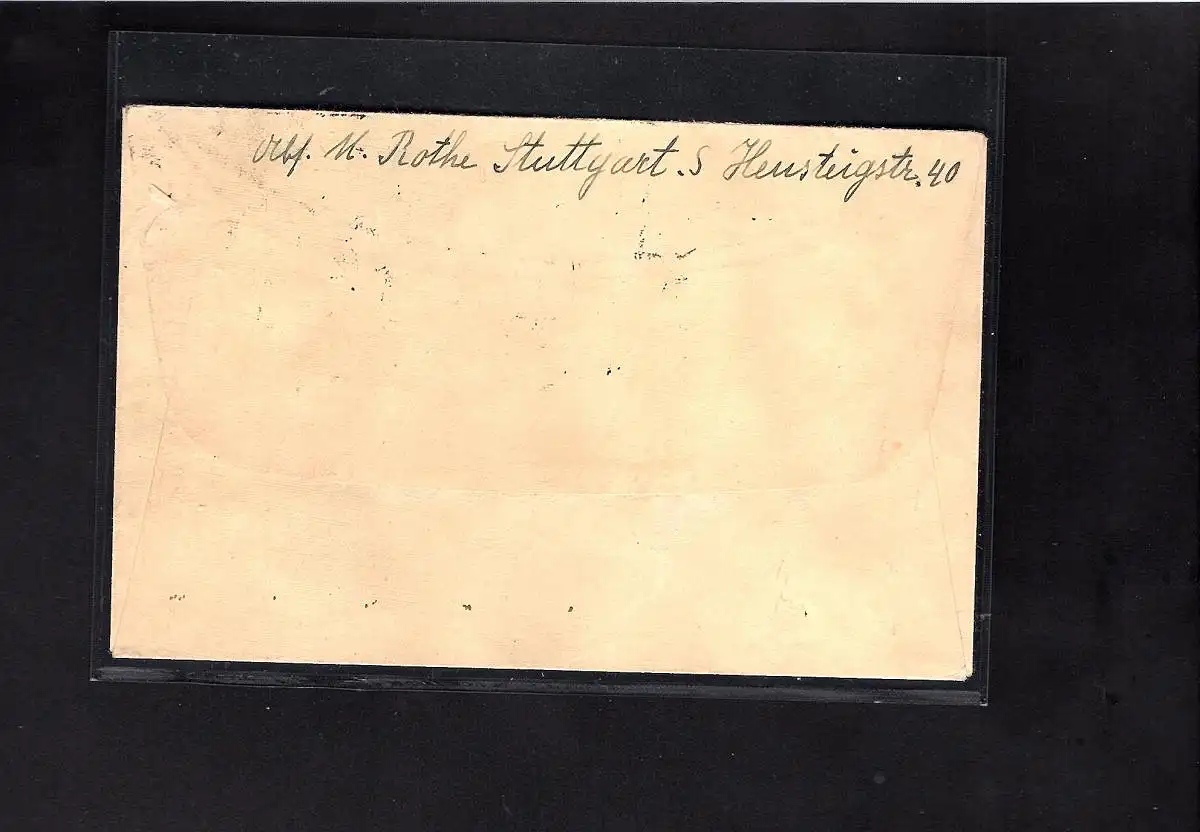 Abf. M. Rothe Stuttgart. S Heusteigstr. 40